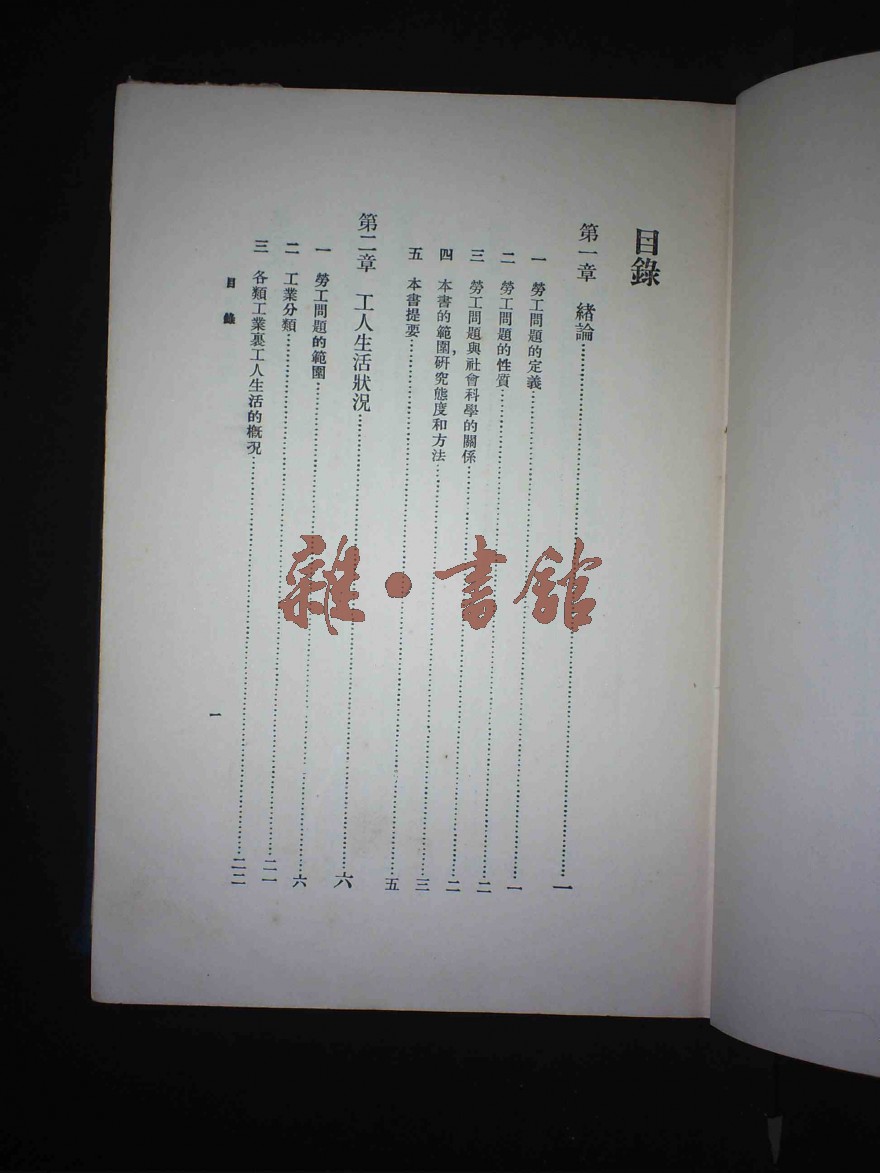 目錄
第一章 緒論……一
一 勞工問題的定義……一
二 勞工問題的性質……二
三 勞工問題與社會科學的關係……二
四 本書的範圍，研究態度和方法……三
五 本書提要……五
第二章 工人生活狀況……六
一 勞工問題的範圍……六
二 工業分類……二一
三 各類工業裏工人生活的概況……二二
目錄
一
雜·書館